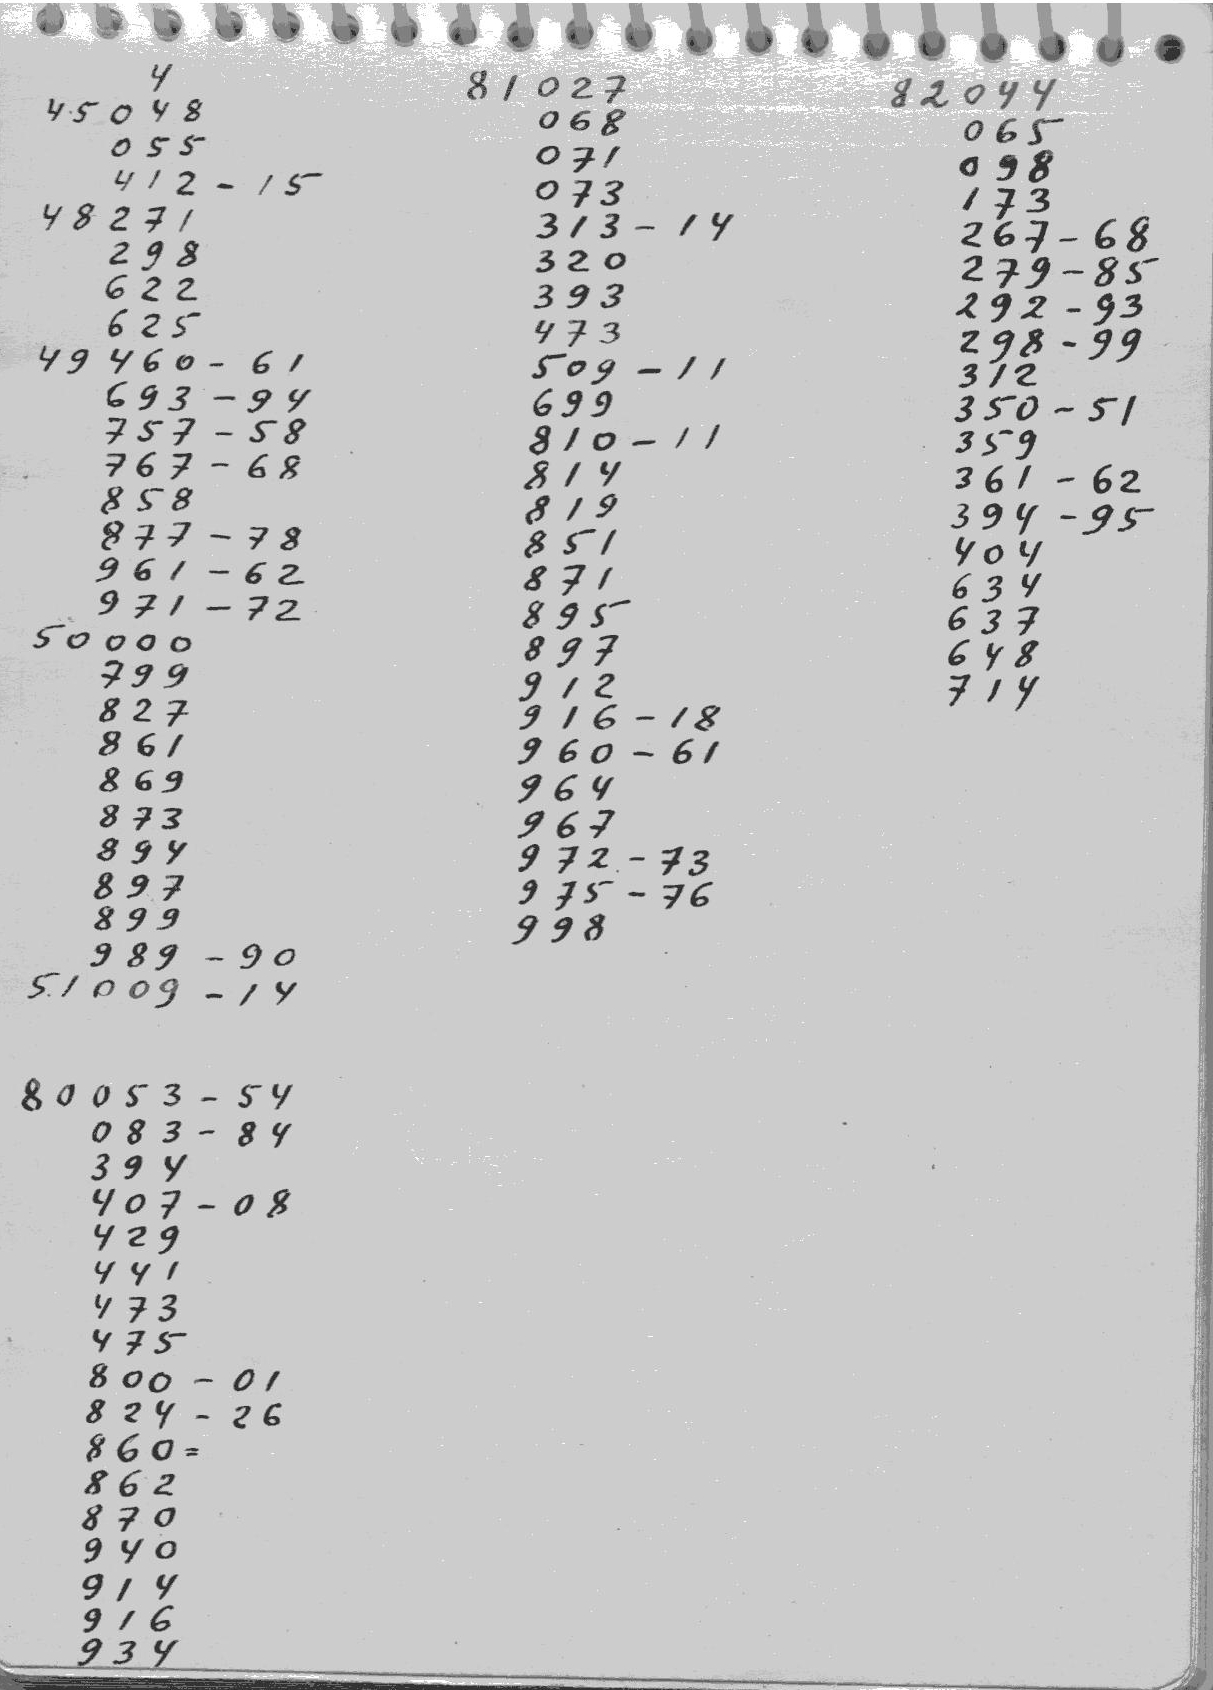 4
45048
055
412-15
48271
298
622
625
49460-61
693-94
757-58
767-68
858
877-78
961-62
971-72
50000
799
827
861
869
873
894
897
899
989-90
51009-14
80053-54
083-84
394
407-08
429
441
473
475
800-01
824-26
860=
862
870
940
914
916
934
81027
068
071
073
313-14
320
393
473
509-11
699
810-11
814
819
851
871
895
897
912
916-18
960-61
964
967
972-73
975-76
998
82044
065
098
173
267-68
279-85
292-93
298-99
312
350-51
359
361-62
394-95
404
634
637
648
714